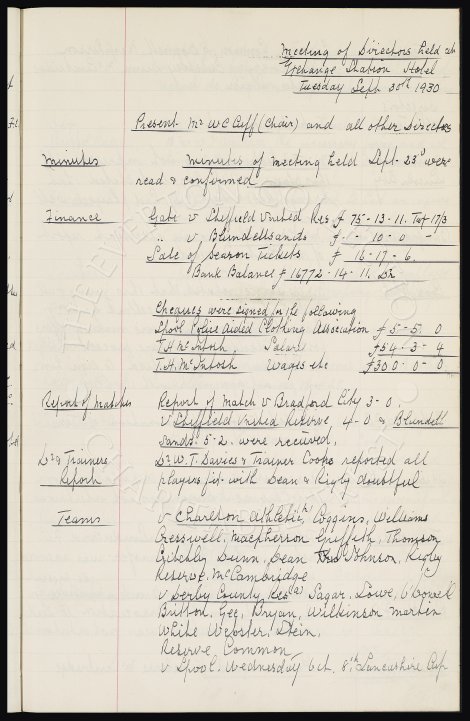 Meeting of Directors held at
Exchange Station Hotel
Tuesday Sept 30th 1930
Present Mr W C Cuff (Chair) and all other Directors
Minutes Minutes of meeting held Sept. 23d were
read & confirmed
Finance Gate v Sheffield United Res £ 75-13-11. Tax 17/3
" v. Blundellsands £ 1-10-0 -
Sale of Season Tickets £ 16-17-6.
Bank Balance £ 16772-14-11. Dr
Cheques were signed for the following
Lpool Police Aided Clothing Association £5-5. 0
T. H. McIntosh, Salary £54-3-4
T. H. McIntosh Wages etc £300-0-0
Report of Matches Report of Match v Bradford City 3-0,
v Sheffield United Reserve, 4-0 & Blundell
sands. 5-2. were received,
Dr & Trainers Dr W. T. Davies & Trainer Cooke reported all
Report players fit with Dean & Rigby doubtful
Teams v Charlton Athletic, Coggins, Williams
Cresswell, Macpherson Griffith, Thomson
Critchley Dunn, Dean Johnson, Rigby
Reserve, McCambridge
v Derby County Res (a) Sagar, Lowe, O'Donnell
Britton, Gee, Bryan, Wilkinson Martin
White Webster, Stein,
Reserve Common
v Lpool, Wednesday Oct. 8th Lancashire Cup